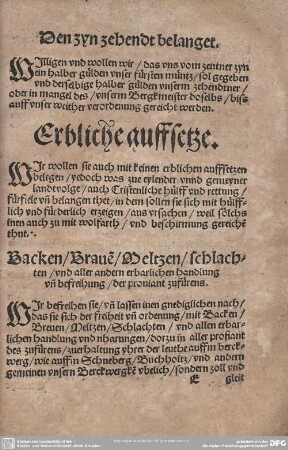 Den zyn zehendt belanget.
WIlligen vnd wollen wir / das vns vom zentner zyn
ein halber gülden vnser fürsten müntz / sol gegeben
vnd derselbige halber gülden vnserm zehendtner /
oder in mangel des / vnserm Bergkmeister doselbs / bisz
auff vnser weither verordenung gereicht werden.
Erbliche auffsetze.
WIr wollen sie auch mit keinen erblichen auffsetzen
belegen / yedoch was zu eylender vnnd gemeyner
landtvolge / auch Cristenliche hülff vnd rettung /
für fiele vñ belangen thet / in dem sollen sie sich mit hülff-
lich vnd fürderlich erzeigen / aus vrsachen / weil sölchs
inen auch zu mit wolfarth / vnd beschirmung gereichẽ
thut.
Backen / Brauẽ / Meltzen / schlach-
ten / vnd aller andern erbarlichen handlung
vñ befreihung / der proniant zufürens.
WIr befreihen sie / vñ lassen inen gnediglichen nach /
das sie sich der friheit vñ ordenung / mit Backen /
Breuen / Meltzen / Schlachten / vnd allen erbar-
lichen handlung vnd niharungen / dorzu in aller profiant
des zufürens / zuerhaltung yhrer der leuthe auff in berck-
werg / wie auff in Schneberg / Buchholtz / vnd andern
gemeinen vnsern Berckwergkẽ vbelich / sondern zoll vnd
E gleit